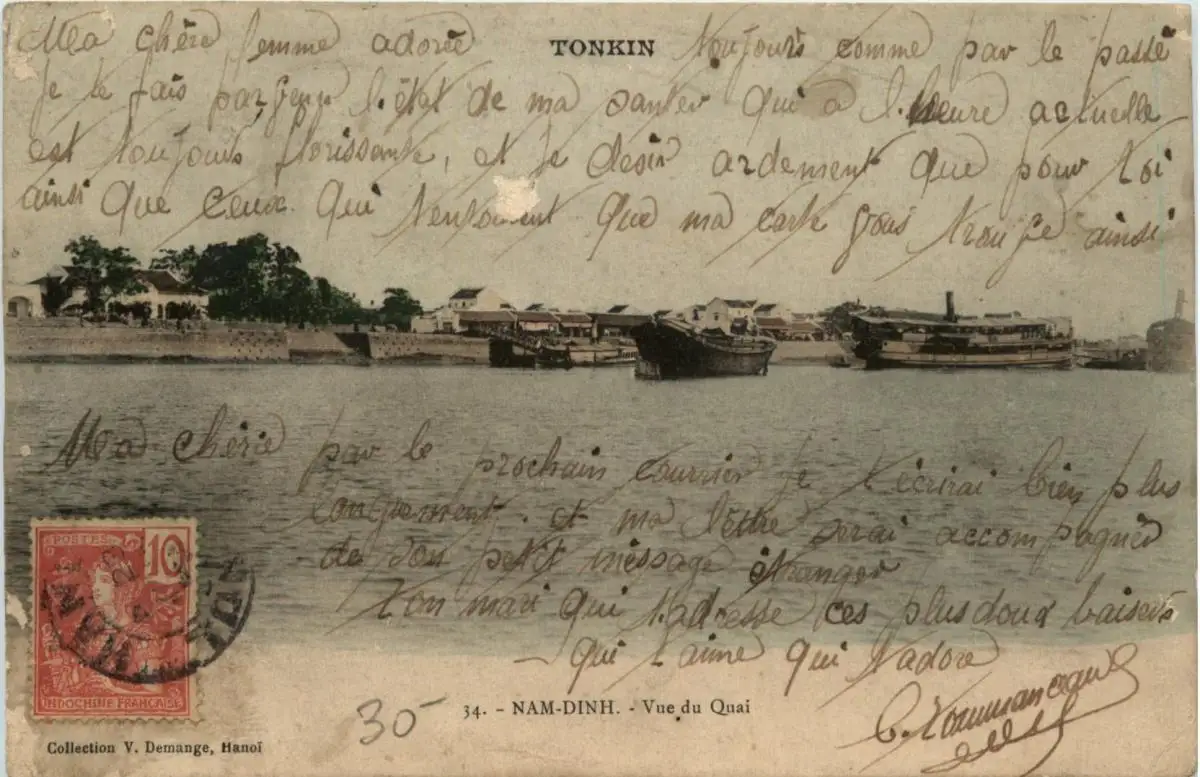 TONKIN
Ma chère femme adorée toujours comme par le passé
je te fais parvenir l'état de ma santer qui a l'heure actuelle
est toujours florissante, et je désir ardement que pour toi
ainsi que ceux qui t'entourent que ma carte vous trouve ainsi
Ma chérie par le prochain courrier je t'écrirai bien plus
longuement et ma lettre serai accompagnée
de son petit message étranger
Ton mari qui t'adresse ces plus doux baisers
qui t'aime qui t'adore
POSTES
10
INDOCHINE FRANÇAISE
30-
34. - NAM-DINH. - Vue du Quai
Collection V. Demange, Hanoï